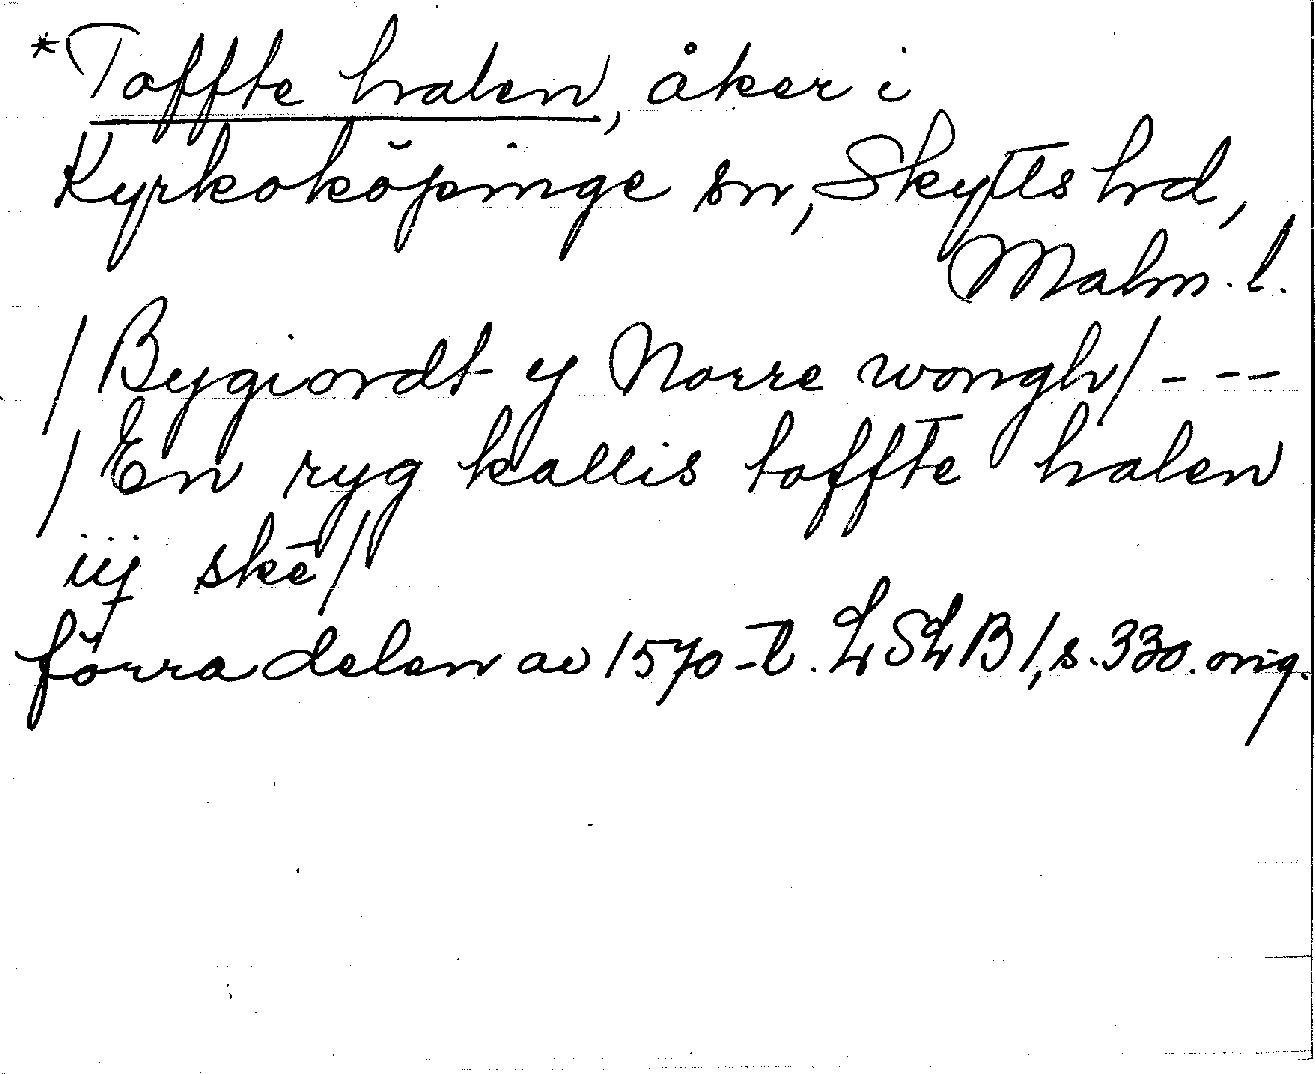 *Toffte halen, åker i
Kyrkoköpinge sn, Skytts hd,
Malm. l.
/Bygiordt y Norre wongh/ - - -
/En ryg kallis toffte halen
iij skē/
förra delen av 1570-t. LSLB 1, s. 330. orig.